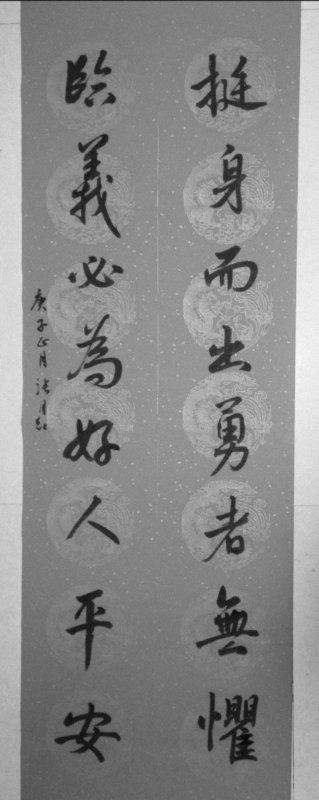 挺身而出勇者無懼
臨義必為好人平安
庚子正月張月紅